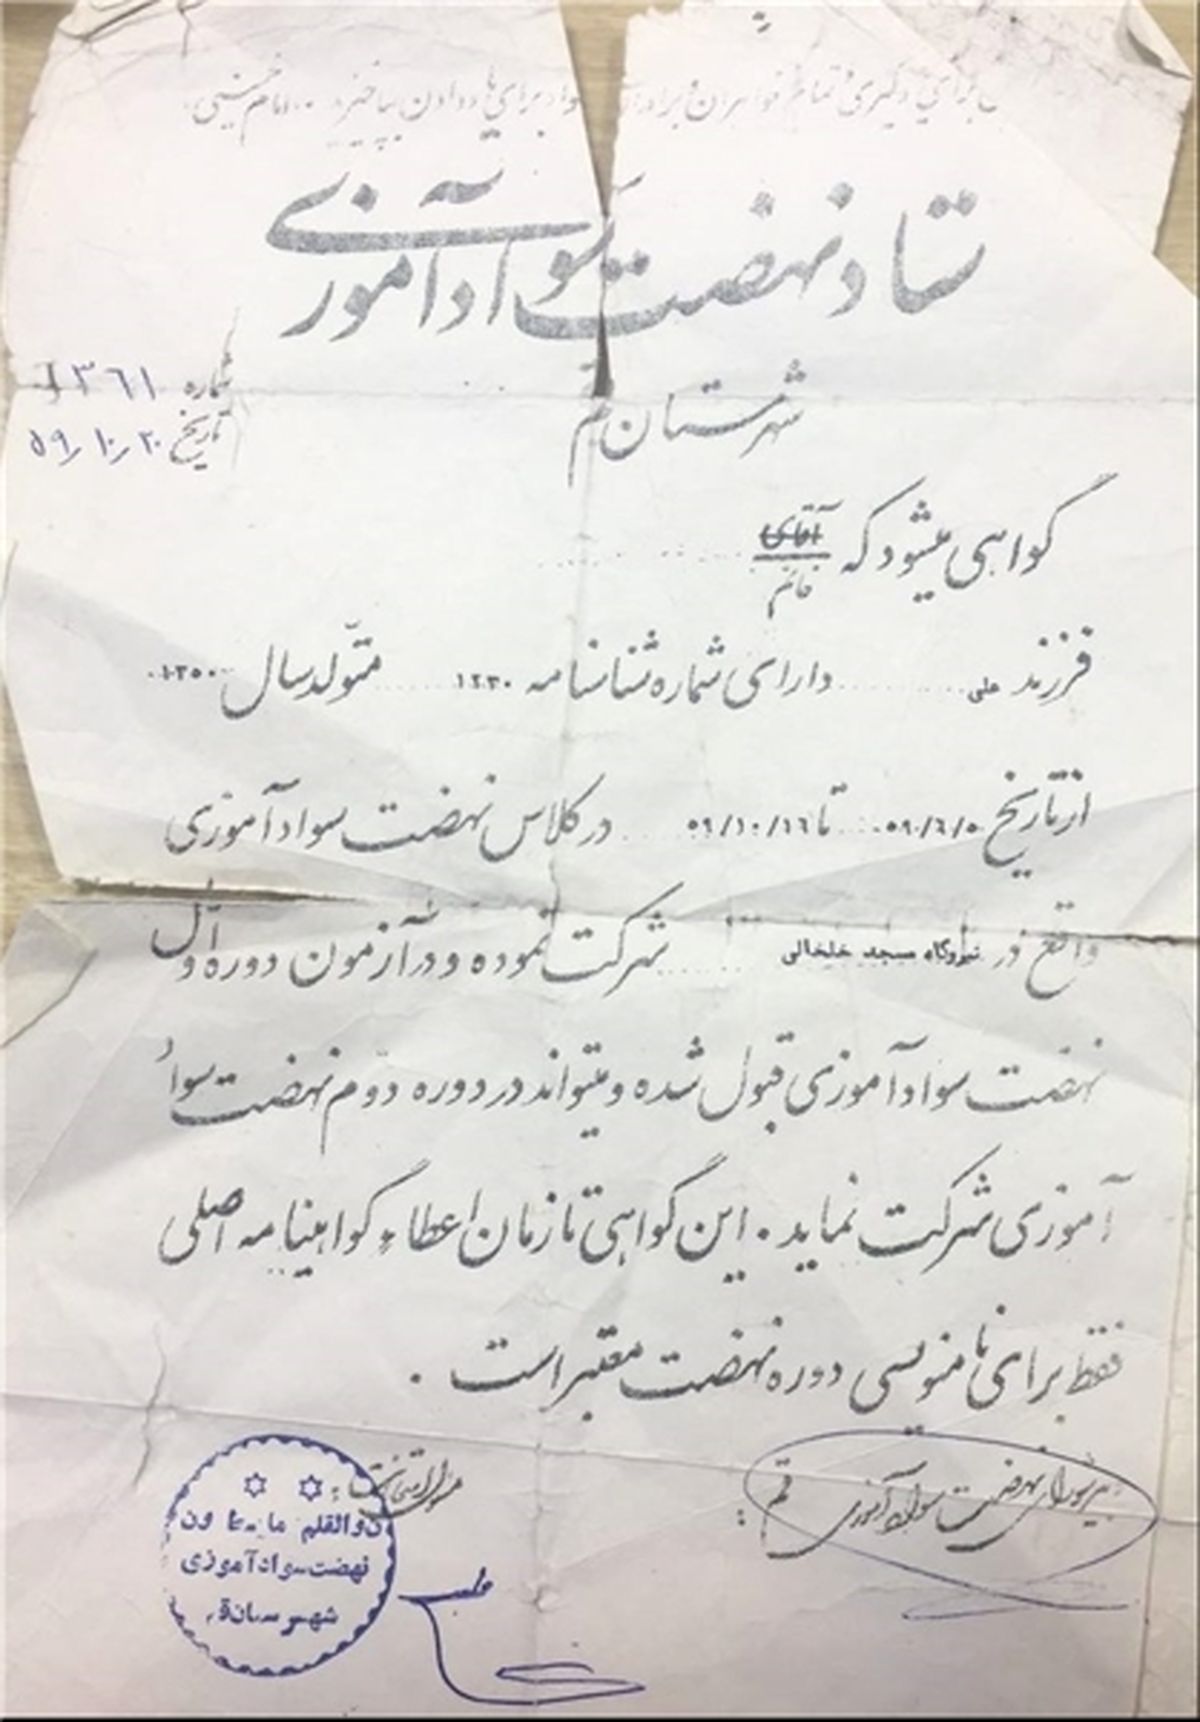 برای یادگیری و تمام خواهران و برادران برای یاد دادن بپاخیزند. امام خمینی
ستاد نهضت سوادآموزی
شهرستان قم
شماره ۱۳۶۱
تاریخ ۵۹/۱۰/۲۰
گواهی میشود که آقای
خانم
فرزند علی دارای شماره شناسنامه ۱۲۳۰ متولد سال ۱۳۵۰
از تاریخ ۵۹/۶/۵ تا ۵۹/۱۰/۱۶ در کلاس نهضت سوادآموزی
واقع در نیروگاه مسجد خلخالی شرکت نموده و در آزمون دوره اول
نهضت سوادآموزی قبول شده و میتواند در دوره دوم نهضت سواد
آموزی شرکت نماید. این گواهی تا زمان اعطاء گواهینامه اصلی
فقط برای نامنویسی دوره نهضت معتبر است.
نهضت سوادآموزی قم:
مسئول امتحانات:
ن والقلم ما یسطرون
نهضت سوادآموزی
شهرستان قم